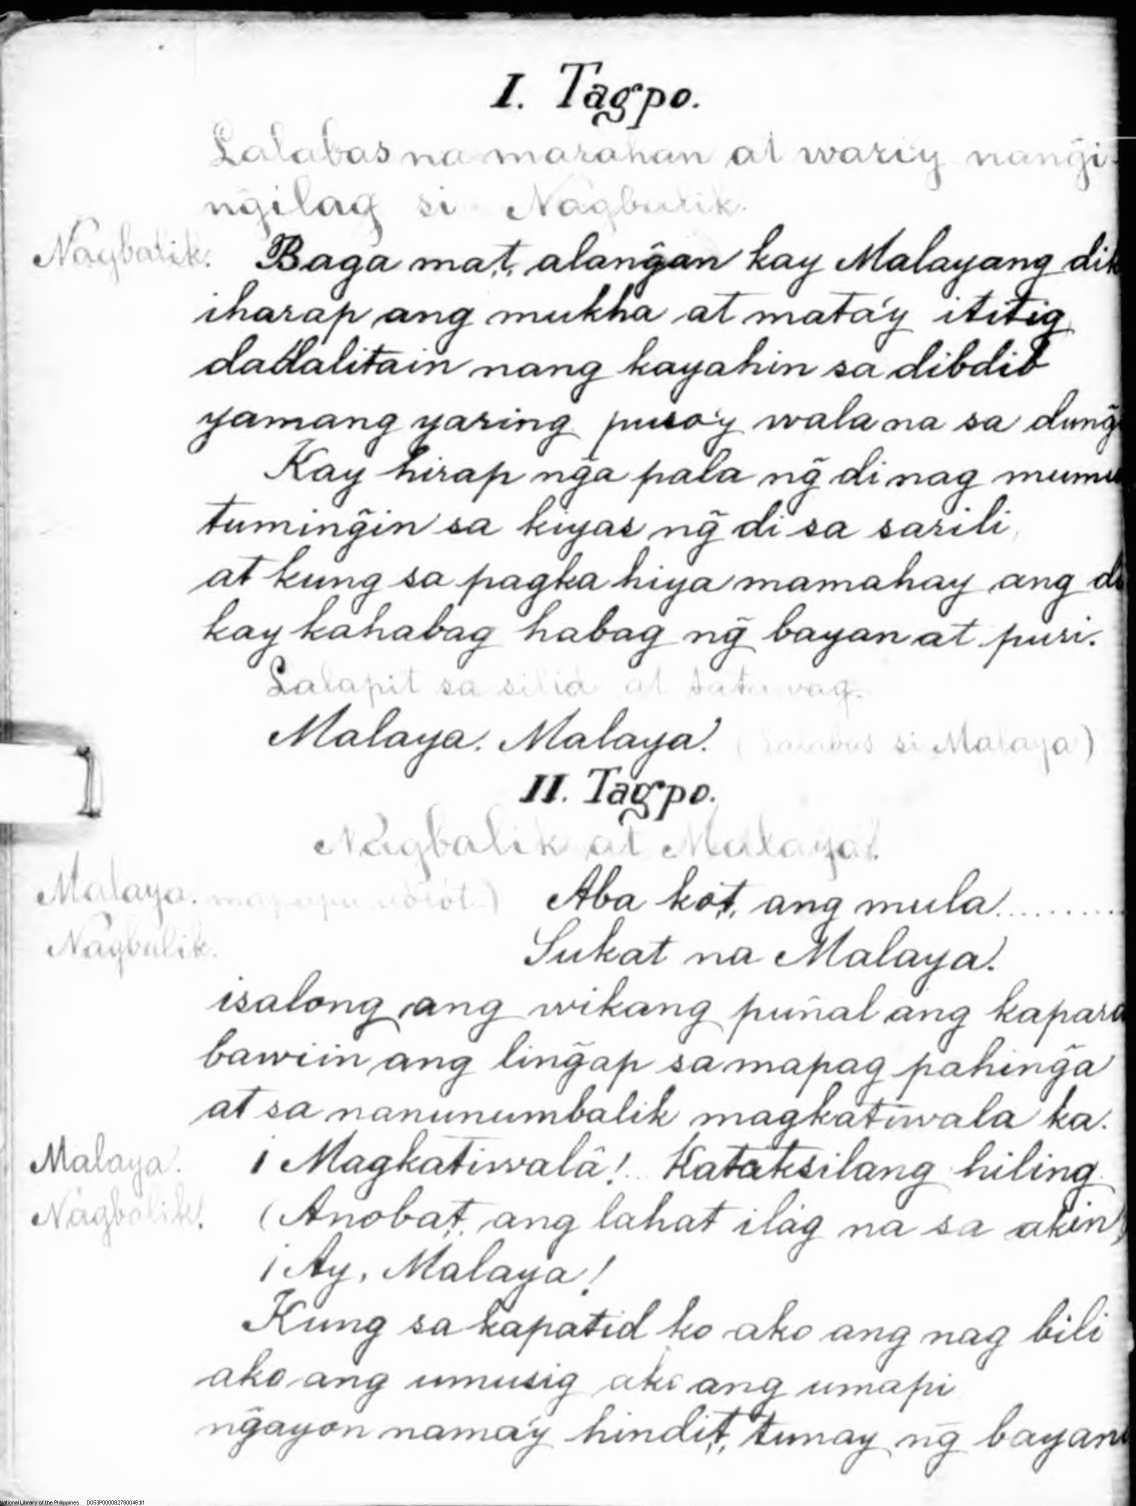 I. Tagpo.
Lalabas na marahan at wariy nangĩ-
ngĩlag si Nagbalik.
Nagbalik. Baga mat, alangãn kay Malayang dik
iharap ang mukha at matáy ititig
dadalitain nang kayahin sa dibdib
yamang yaring pusoy wala na sa dung̃
Kay hirap ng̃a pala ng̃ di nag
tuming̃in sa kiyas ng̃ di sa sarili,
at kung sa pagka hiya mamahay ang
kay kahabag habag ng̃ bayan at puri.
Lalapit sa silid at tatawag.
Malaya. Malaya! (Lalabas si Malaya)
II. Tagpo.
Nagbalik at Malaya.
Malaya. Aba kót, ang mula..........
Nagbalik. Sukat na Malaya!
isalong ang wikang puñal ang kapara
bawiin ang ling̃ap sa mapag pahing̃a
at sa nanunumbalik magkatiwala ka.
Malaya. ¡Magkatiwalâ! Kataksilang hiling
Nagbalik. (Anobat, ang lahat ilág na sa akin)
¡Ay, Malaya!
Kung sa kapatid ko ako ang nag bili
ako ang umusig ako ang umapi
ng̃ayon namáy hindit, tunay ng̃ bayani
National Library of the Philippines